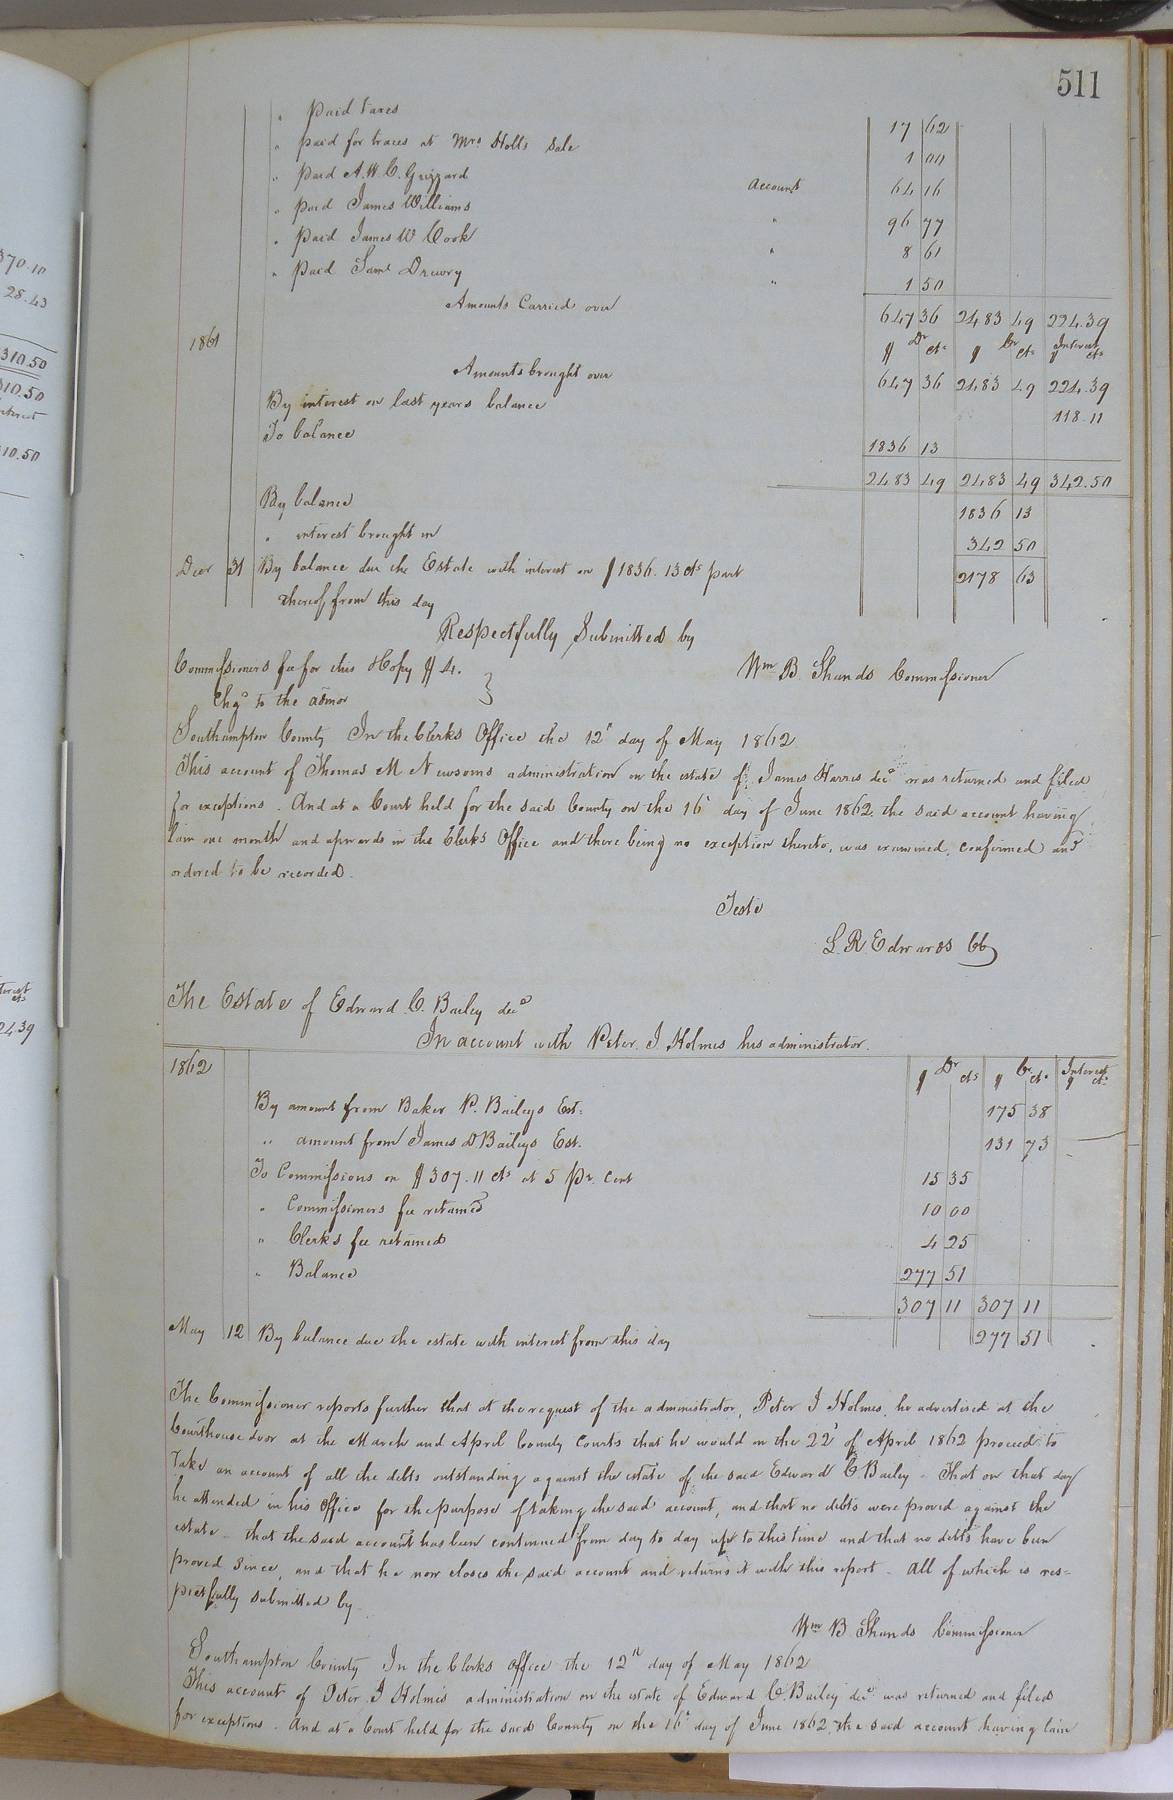 511
" paid taxes 17 62
" paid for traces at Mrs Holts sale 1 00
" paid A. W. C. Grizzard account 64 16
" paid James Williams " 96 77
" paid James W Cook " 8 61
" paid Saml Drewry " 1 50
Amounts Carried over 647 36 2483 49 224.39
1861 $ Dr cts $ Cr cts Interest $ cts
Amounts brought over 647 36 2483 49 224.39
By interest on last years balance 118.11
To balance 1836 13
2483 49 2483 49 342.50
By balance 1836 13
" interest brought in 342 50
Decr 31 By balance due the Estate with interest on $1836.13 cts part 2178 63
thereof from this day
Respectfully Submitted by
Commissioners fee for this & Copy $4. } Wm B. Shands Commissioner
Chgd to the admor
Southampton County In the Clerks Office the 12th day of May 1862
This account of Thomas M Newsoms administration on the estate of James Harris decd was returned and filed
for exceptions. And at a Court held for the said County on the 16th day of June 1862 the said account having
lain one month and upwards in the Clerks Office and there being no exception thereto, was examined, confirmed and
ordered to be recorded.
Teste
L. R. Edwards CC
The Estate of Edward C. Bailey decd
In account with Peter J Holmes his administrator.
1862 $ Dr cts $ Cr cts Interest $ cts
By amount from Baker P. Baileys Est: 175 38
" amount from James D Baileys Est. 131 73
To Commissions on $307.11 cts at 5 pr. Cent 15 35
" Commissioners fee retained 10 00
" Clerks fee retained 4 25
" Balance 277 51
307 11 307 11
May 12 By balance due the estate with interest from this day 277 51
The Commissioner reports further that at the request of the administrator, Peter J Holmes, he advertised at the
Courthouse door at the March and April County Courts that he would on the 22d of April 1862 proceed to
take an account of all the debts outstanding against the estate of the said Edward C Bailey - That on that day
he attended in his Office for the purpose of taking the said account, and that no debts were proved against the
estate - that the said account has been continued from day to day up to this time and that no debts have been
proved since, and that he now closes the said account and returns it with this report - All of which is res=
pectfully submitted by
Wm B Shands Commissioner
Southampton County In the Clerks office the 12th day of May 1862
This account of Peter J Holmes administration on the estate of Edward C. Bailey decd was returned and filed
for exceptions. And at a Court held for the said County on the 16th day of June 1862, the said account having lain
370.10
28.43
310.50
310.50
310.50
24.39